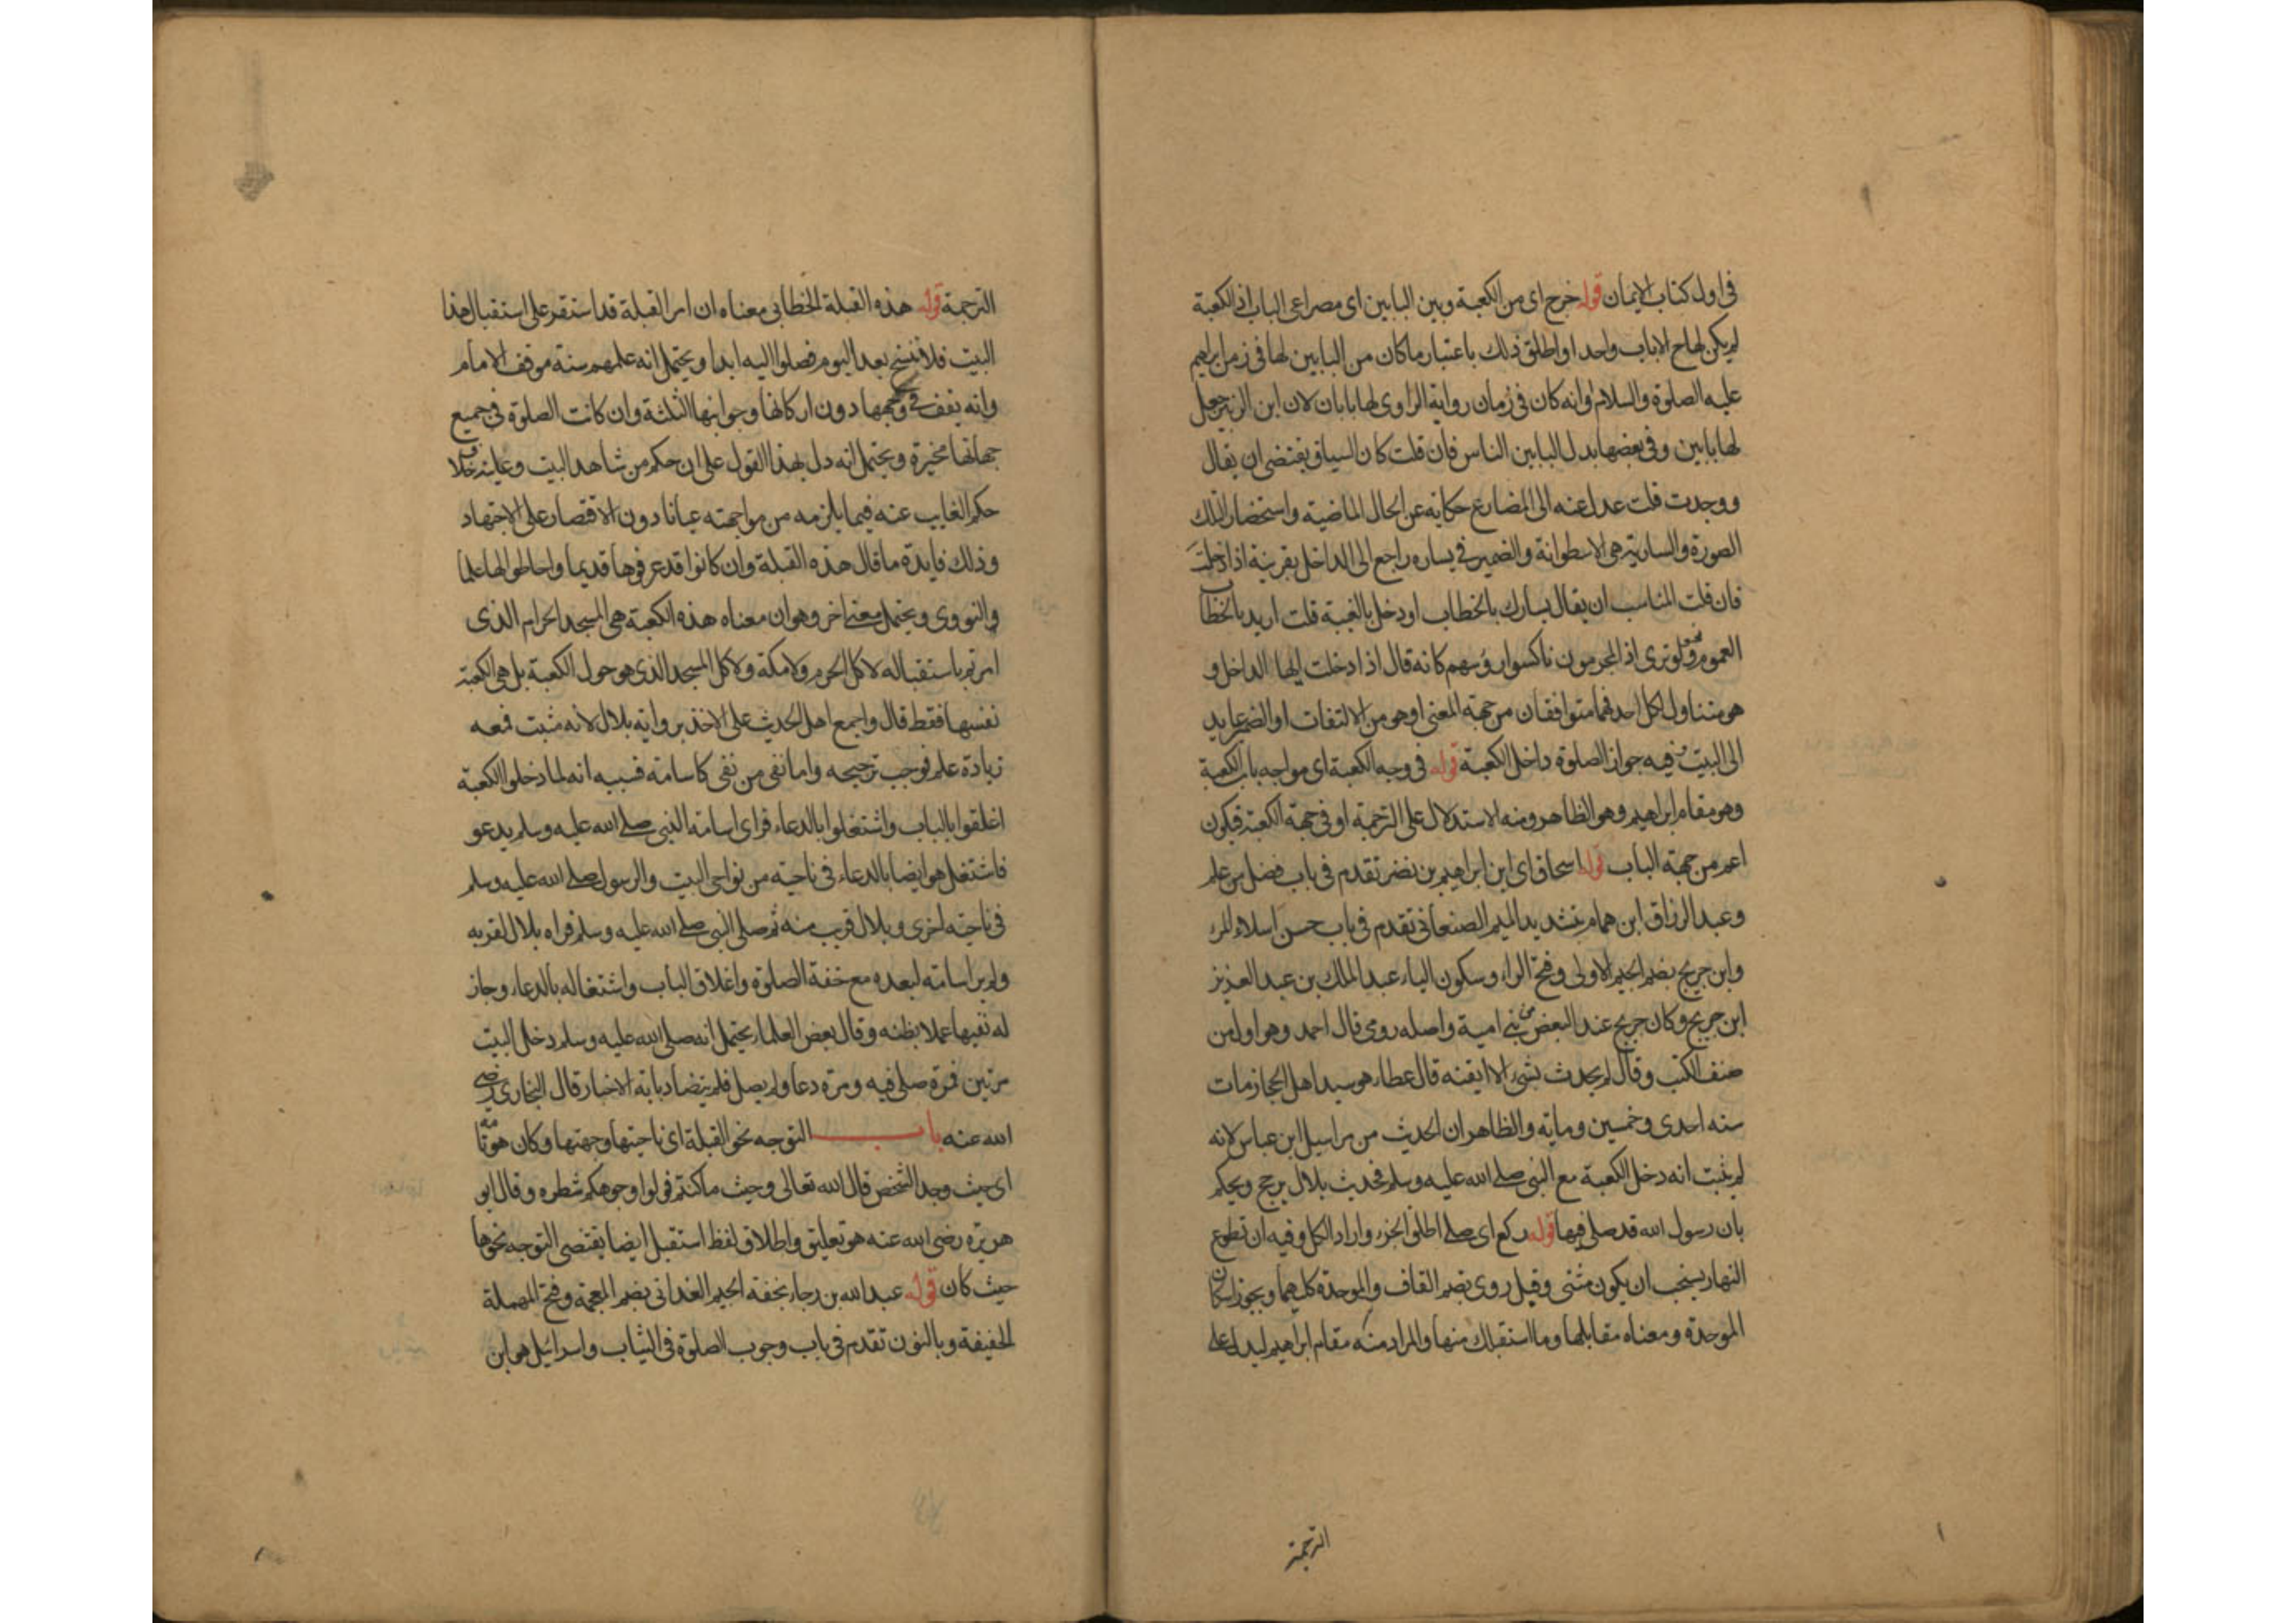 فى اول كتاب الايمان قوله خرج اى من الكعبة وبين البابين اى مصراعى الباب اذ الكعبة
لم يكن لها ح الا باب واحد او اطلق ذلك باعتبار ما كان من البابين لها فى زمن ابراهيم
عليه الصلوة والسلام او انه كان فى زمان رواية الراوى لها بابان لان ابن الزبير جعل
لها بابين وفى بعضها بدل البابين الناس فان قلت كان السياق يقتضى ان يقال
ووجدت قلت عدل عنه الى المضارع حكاية عن الحال الماضية واستحضار التلك
الصورة والسارية هى الاسطوانة والضمير فى يساره راجع الى الداخل بقرينة اذا دخلت
فان قلت المناسب ان يقال يسارك بالخطاب او دخل بالغيبة قلت اريد بالخطاب
العموم نحو ولو ترى اذ المجرمون ناكسوا رؤسهم كانه قال اذا دخلت ايها الداخل و
هو متناول لكل احد فهما متوافقان من جهة المعنى او هو من الالتفات او الضمير عايد
الى البيت وفيه جواز الصلوة داخل الكعبة قوله فى وجه الكعبة اى مواجه باب الكعبة
وهو مقام ابراهيم وهو الظاهر ومنه الاستدلال على الترجمة او فى جهة الكعبة فيكون
اعم من جهة الباب قوله اسحاق اى ابن ابراهيم بن نضر تقدم فى باب فضل من علم
وعبد الرزاق ابن همام بتشديد الميم الصنعانى تقدم فى باب حسن اسلام المرء
وابن جريج بضم الجيم الاولى وفتح الراء وسكون الياء عبد الملك بن عبد العزيز
ابن جريج وكان جريج عند البعض من بنى امية واصله رومى قال احمد وهو اول من
صنف الكتب وقال لم يحدث بشىء الا اتقنه قال عطاء هو سيد اهل الحجاز مات
سنه احدى وخمسين وماية والظاهر ان الحديث من مراسيل ابن عباس لانه
لم يثبت انه دخل الكعبة مع النبى صلى الله عليه وسلم فحديث بلال يرجح ويحكم
بان رسول الله قد صلى فيها قوله ركع اى صلى اطلق الجزء واراد الكل وفيه ان تطوع
النهار يستحب ان يكون مثنى وقبل روى بضم القاف والموحدة كليهما ويجوز اسكان
الموحدة ومعناه مقابلها وما استقبلك منها والمراد منه مقام ابراهيم ليدل على
الترجمة
الترجمة قوله هذه القبلة الخطابى معناه ان امر القبلة قد استقر على استقبال هذا
البيت فلا ينسخ بعد اليوم فصلوا اليه ابدا ويحتمل انه علمهم سنة موقف الامام
وانه يقف فى وجهها دون اركانها وجوانبها الثلثة وان كانت الصلوة فى جميع
جهاتها مجزية ويحتمل انه دل بهذا القول على ان حكم من شاهد البيت وعاينه خلاف
حكم الغايب عنه فيما يلزمه من مواجهته عيانا دون الاقتصار على الاجتهاد
وذلك فايدة ما قال هذه القبلة وان كانوا قد عرفوها قديما واحاطوا بها علما
والنووى ويحتمل معنى اخر وهو ان معناه هذه الكعبة هى المسجد الحرام الذى
امرتم باستقباله لا كل الحرم ولا مكة ولا كل المسجد الذى هو حول الكعبة بل هى الكعبة
نفسها فقط قال واجمع اهل الحديث على الاخذ برواية بلال لانه مثبت فمعه
زيادة علم فوجب ترجيحه واما نفى من نفى كاسامة فسببه انه لما دخلوا الكعبة
اغلقوا بالباب واشتغلوا بالدعاء فراى اسامة النبى صلى الله عليه وسلم يدعو
فاشتغل هو ايضا بالدعاء فى ناحية من نواحى البيت والرسول صلى الله عليه وسلم
فى ناحية اخرى وبلال قريب منه ثم صلى النبى صلى الله عليه وسلم فراه بلال لقربه
ولم يره اسامة لبعده مع خفة الصلوة واغلاق الباب واشتغاله بالدعاء وجاز
له نفيها عملا بظنه وقال بعض العلماء يحتمل انه صلى الله عليه وسلم دخل البيت
مرتين فمرة صلى فيه ومرة دعا ولم يصل فلم يتضاد الاخبار قال البخارى رضى
الله عنه باب التوجه نحو القبلة اى ناحيتها وجهتها وكان هو تامة
اى حيث وجد الشخص قال الله تعالى وحيث ما كنتم فولوا وجوهكم شطره وقال ابو
هريرة رضى الله عنه هو تعليق واطلاق لفظ استقبل ايضا يقتضى التوجه نحوها
حيث كان قوله عبد الله بن رجاء بخفة الجيم الغدانى بضم المعجمة وفتح المهملة
الخفيفة وبالنون تقدم فى باب وجوب الصلوة فى الثياب واسرائيل هو ابن